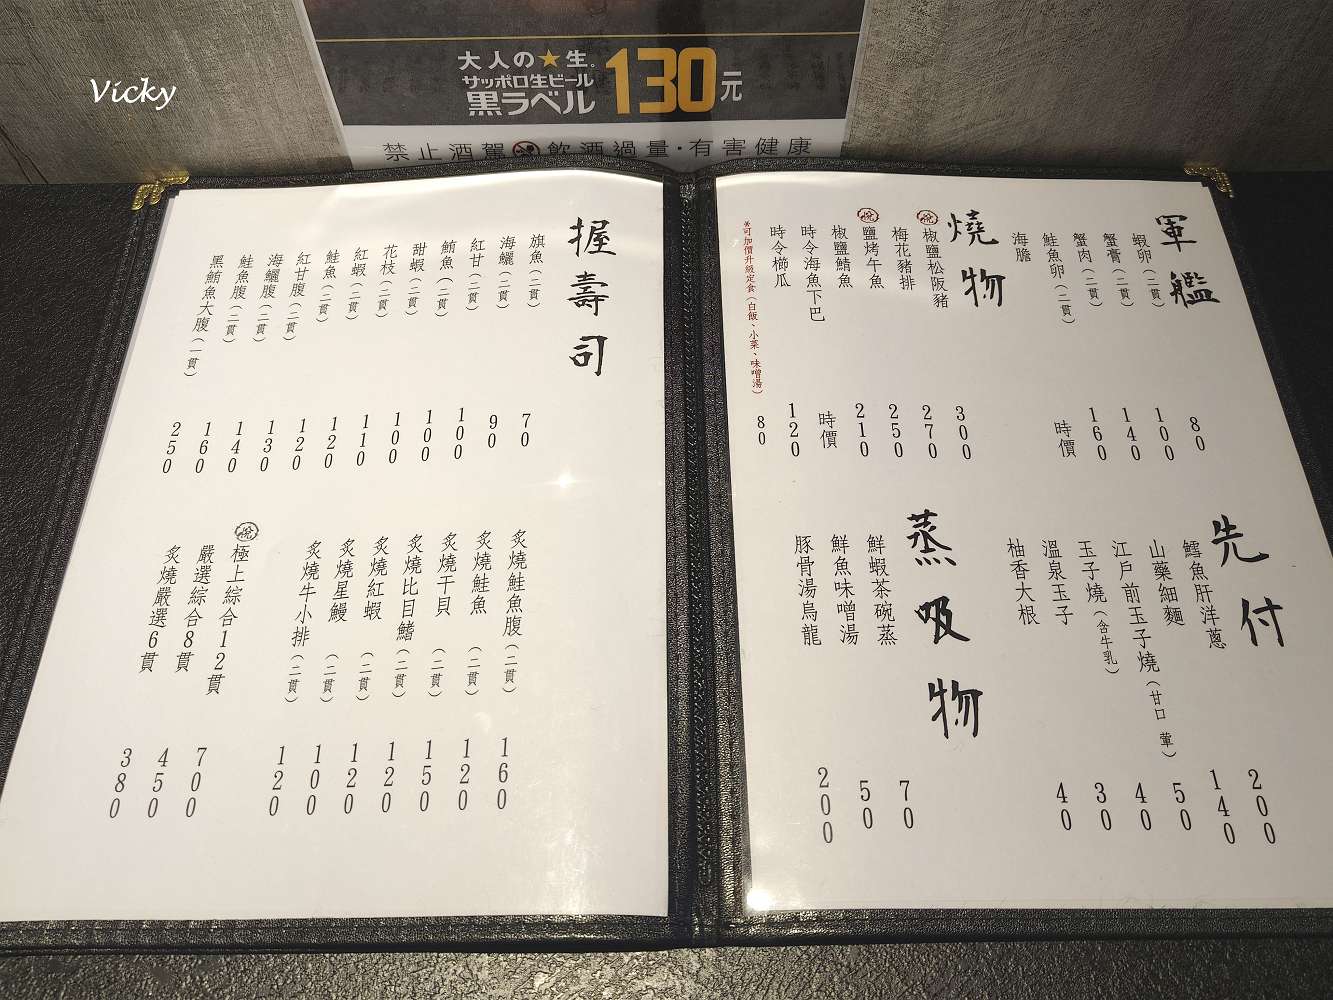 Vicky
大人の★生。
サッポロ生ビール
黒ラベル 130元
禁止酒駕 飲酒過量·有害健康
軍艦
蝦卵(二貫) 80
蟹膏(二貫) 100
蟹肉(二貫) 140
鮭魚卵(二貫) 160
海膽 時價
燒物
悅 椒鹽松阪豬 300
梅花豬排 270
悅 鹽烤午魚 250
椒鹽鯖魚 210
時令海魚下巴 時價
時令櫛瓜 120
*可加價升級定食(白飯、小菜、味噌湯) 80
先付
鱈魚肝洋蔥 200
山藥細麵 140
江戶前玉子燒(甘口 葷) 50
玉子燒(含牛乳) 40
溫泉玉子 30
柚香大根 40
蒸吸物
鮮蝦茶碗蒸 70
鮮魚味噌湯 50
豚骨湯烏龍 200
握壽司
旗魚(二貫) 70
海鱺(二貫) 90
紅甘(二貫) 100
鮪魚(二貫) 100
甜蝦(二貫) 100
花枝(二貫) 110
紅蝦(二貫) 120
鮭魚(二貫) 120
紅甘腹(二貫) 130
海鱺腹(二貫) 140
鮭魚腹(二貫) 160
黑鮪魚大腹(一貫) 250
炙燒鮭魚腹(二貫) 160
炙燒鮭魚(二貫) 120
炙燒干貝(二貫) 150
炙燒比目鰭(二貫) 120
炙燒紅蝦(二貫) 120
炙燒星鰻(二貫) 100
炙燒牛小排(二貫) 120
悅 極上綜合12貫 700
嚴選綜合8貫 450
炙燒嚴選6貫 380